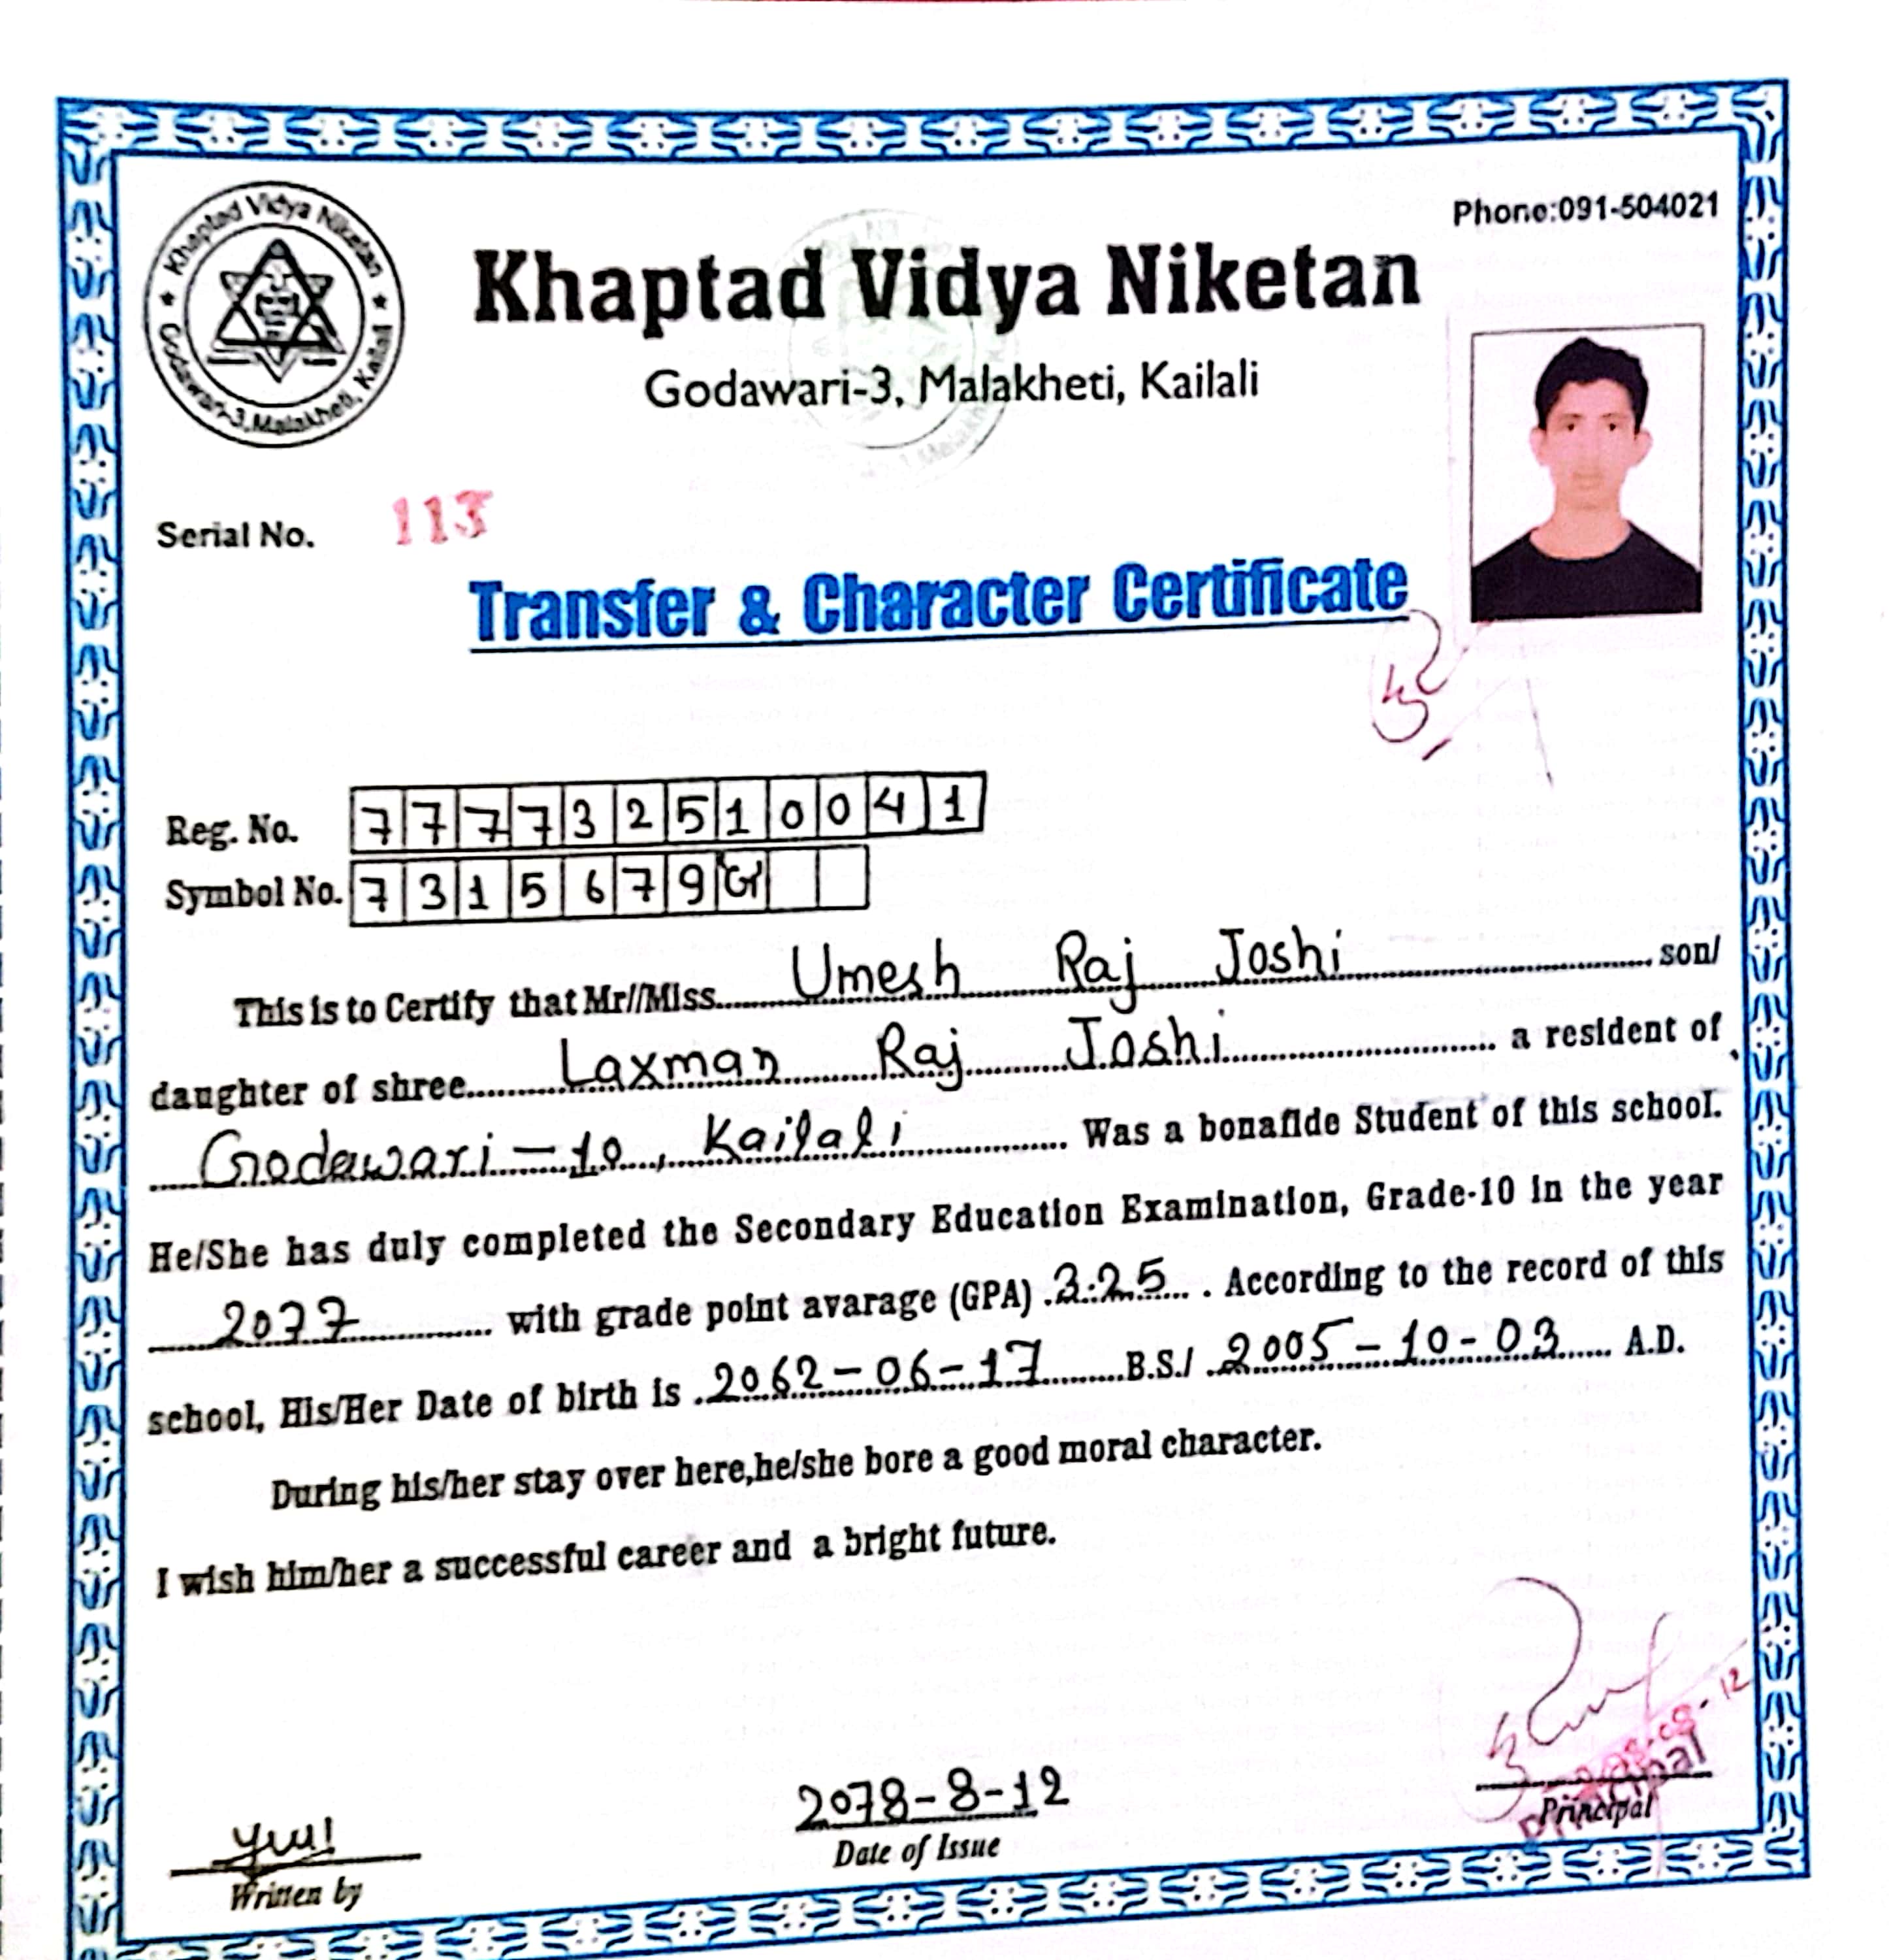 Khaptad Vidya Niketan
Godawari-3, Malakheti, Kailali
Phone:091-504021
Khaptad Vidya Niketan
Godawari-3, Malakheti, Kailali
Serial No. 113
Transfer & Character Certificate
Reg. No. 777732510041
Symbol No. 7315679
This is to Certify that Mr//Miss Umesh Raj Joshi son/
daughter of shree Laxman Raj Joshi a resident of
Godawari-10, Kailali Was a bonafide Student of this school.
He/She has duly completed the Secondary Education Examination, Grade-10 in the year
2077 with grade point avarage (GPA) 3.25 . According to the record of this
school, His/Her Date of birth is 2062-06-17 B.S./ 2005-10-03 A.D.
During his/her stay over here,he/she bore a good moral character.
I wish him/her a successful career and a bright future.
Written by
2078-8-12
Date of Issue
Principal
Principal